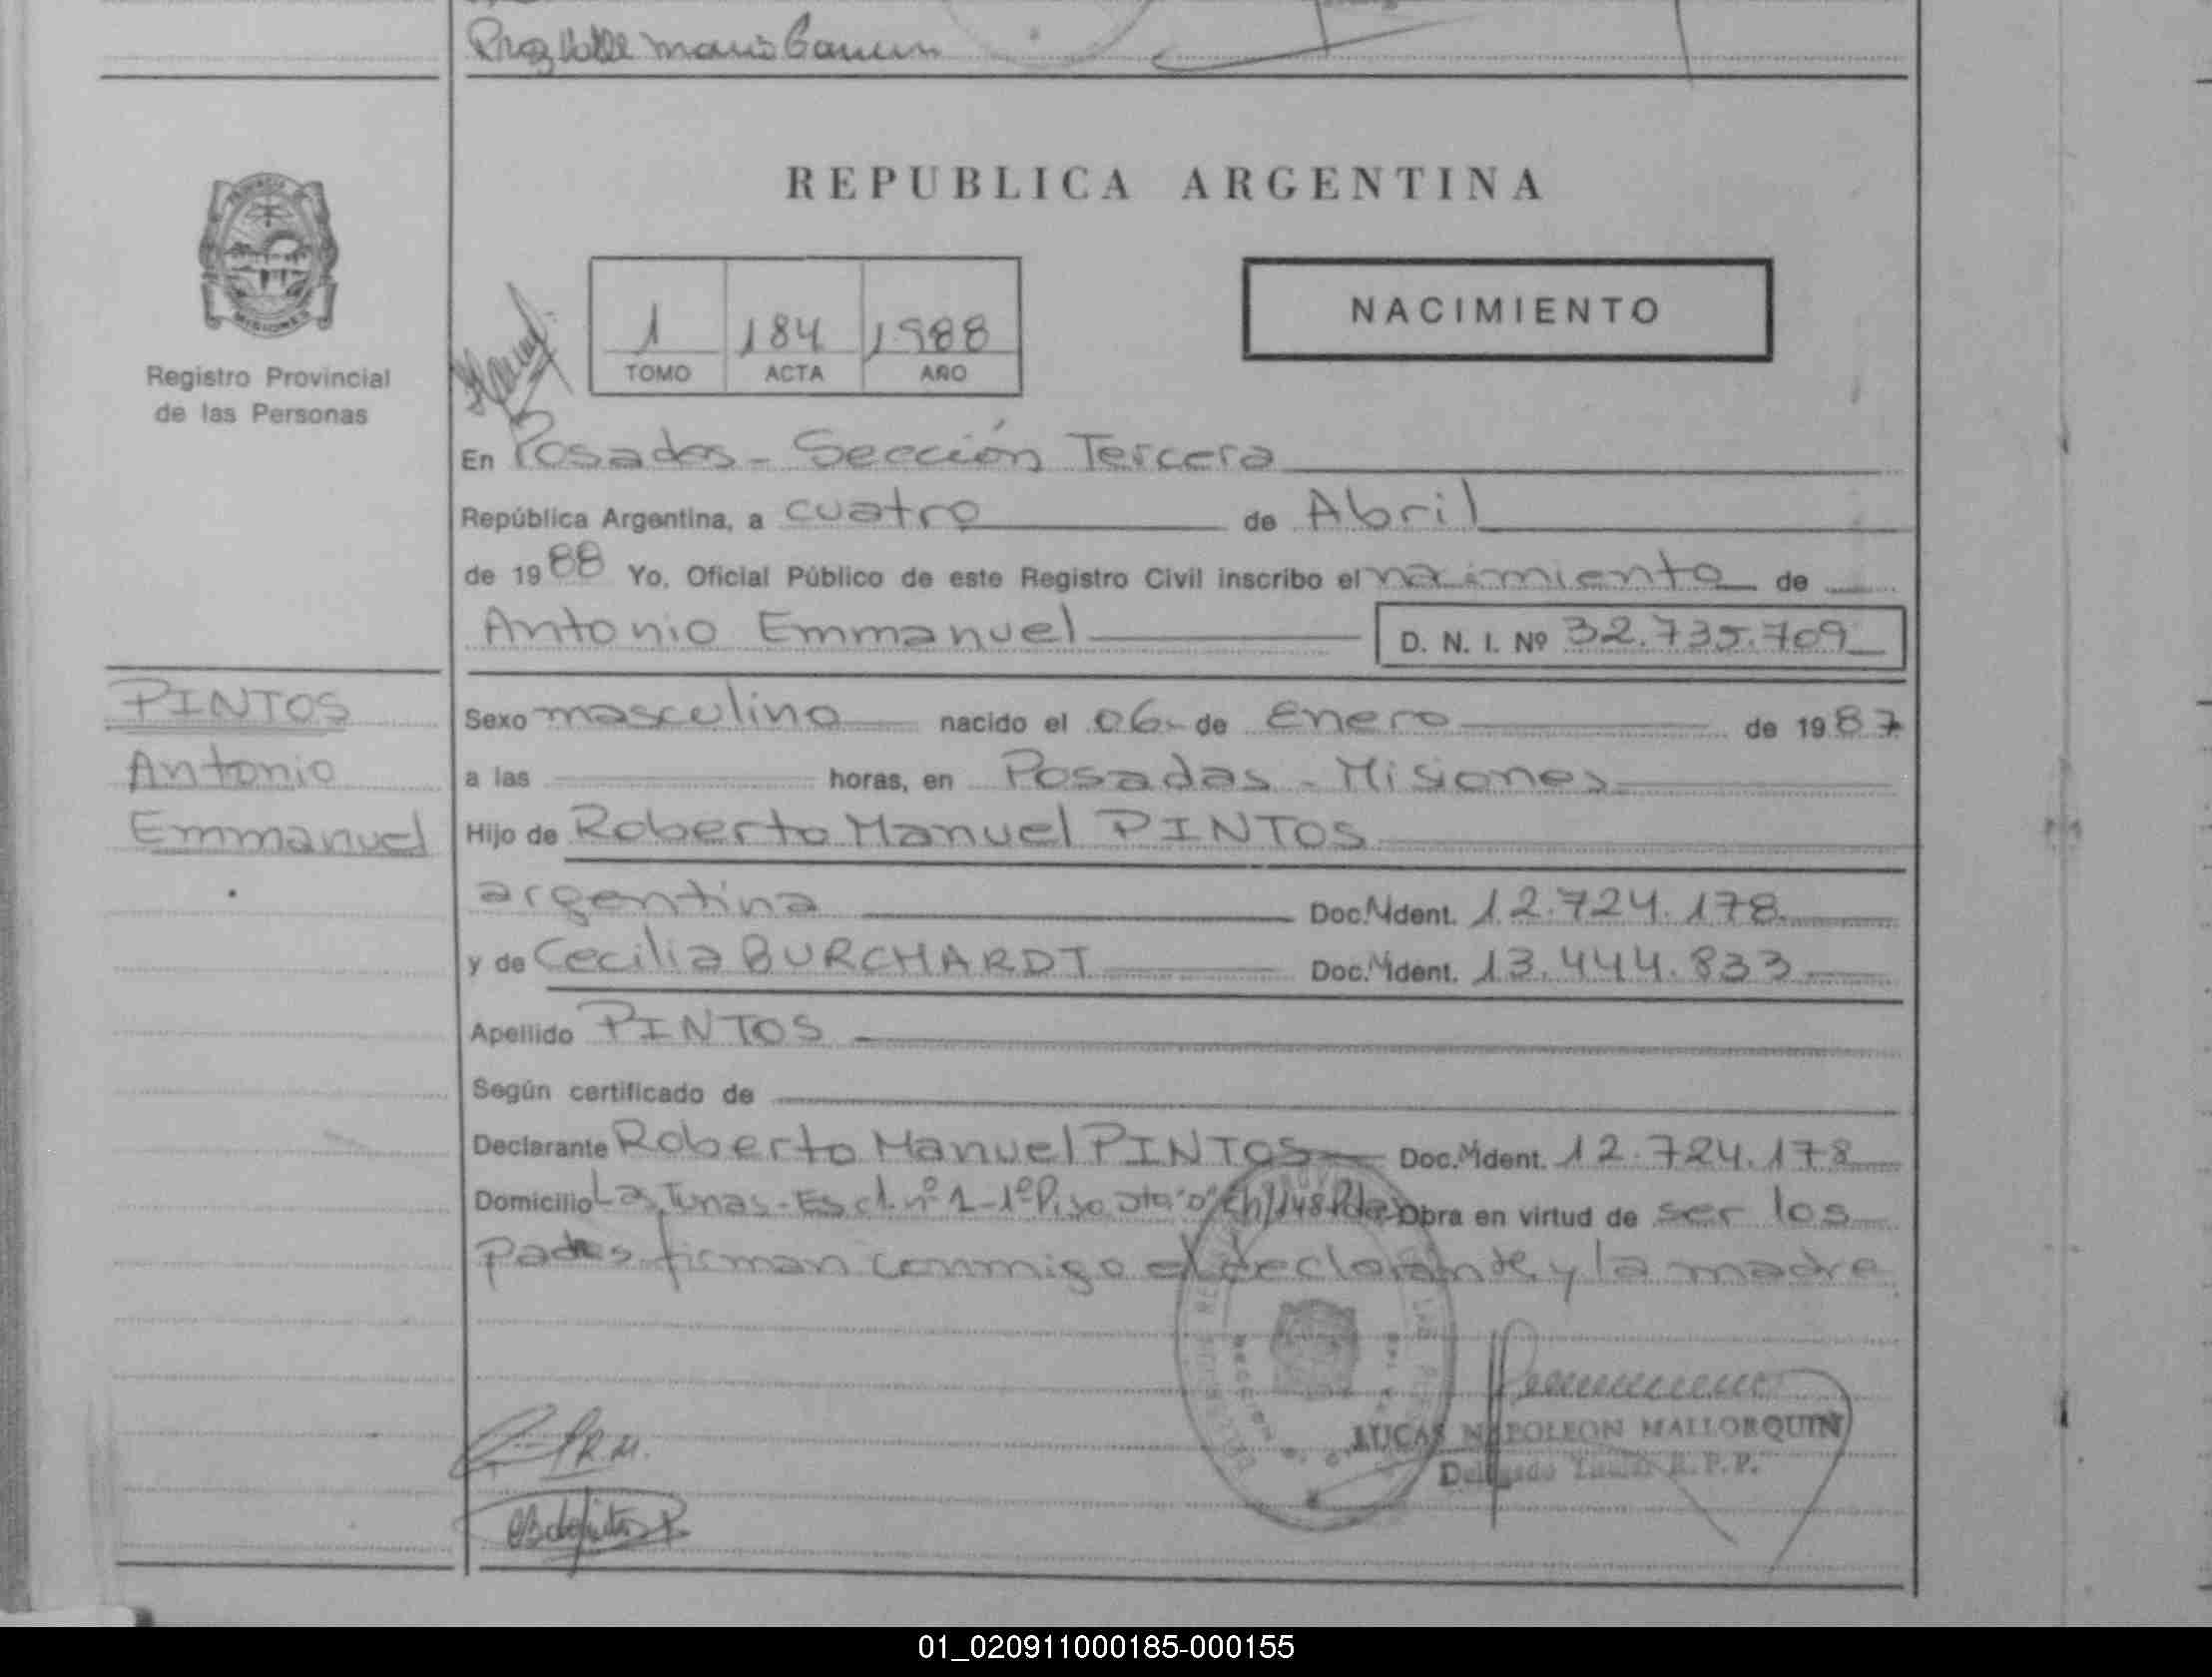 REPUBLICA ARGENTINA
MISIONES
Registro Provincial
de las Personas
1 184 1988
TOMO ACTA AÑO
NACIMIENTO
En Posadas - Sección Tercera
República Argentina, a cuatro de Abril
de 1988 Yo, Oficial Público de este Registro Civil inscribo el nacimiento de
Antonio Emmanuel D. N. I. Nº 32.735.709
PINTOS
Antonio
Emmanuel
Sexo masculino nacido el 06 de Enero de 1987
a las horas, en Posadas - Misiones
Hijo de Roberto Manuel PINTOS
argentina Doc. Ident. 12.724.178
y de Cecilia BURCHARDT Doc. Ident. 13.444.833
Apellido PINTOS
Según certificado de
Declarante Roberto Manuel PINTOS Doc. Ident. 12.724.178
Domicilio Las Tunas - Esc. nº 1 - 1º Piso Obra en virtud de ser los
padres firman conmigo el declarante y la madre
LUCAS NAPOLEON MALLORQUIN
Delegado R.P.P.
01_020911000185-000155